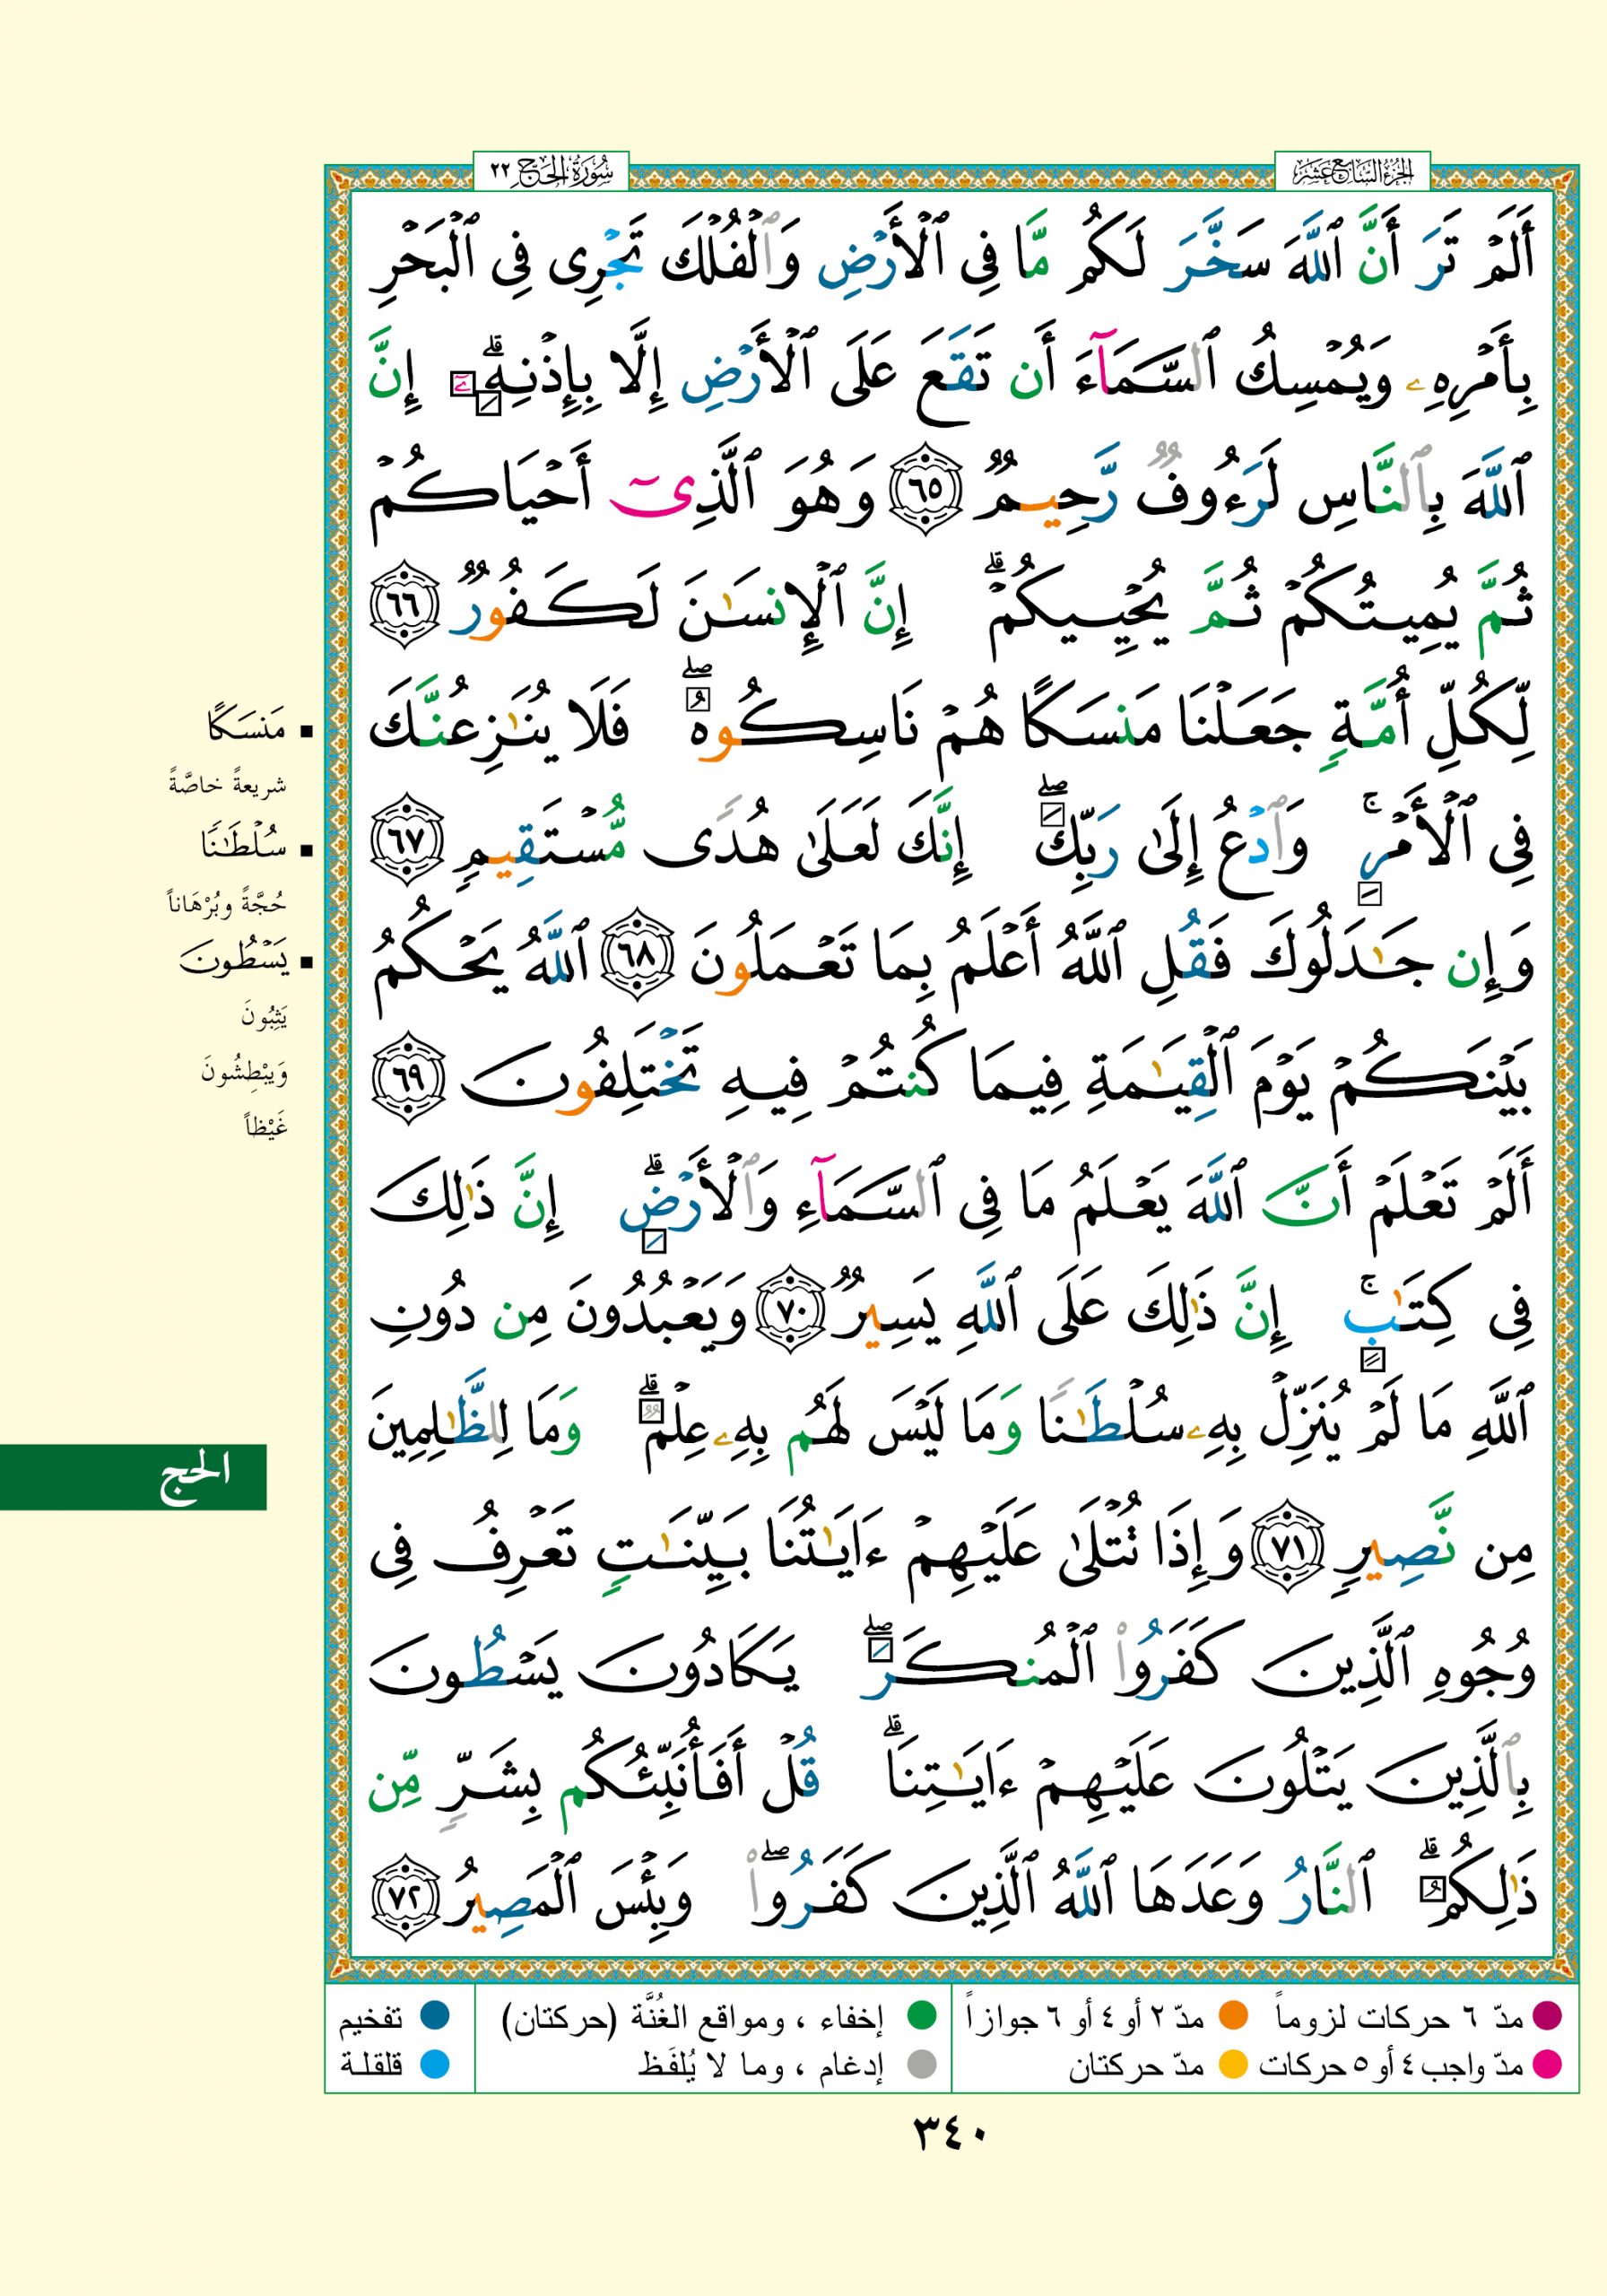 الجزء السابع عشر
سورة الحج ٢٢
أَلَمْ تَرَ أَنَّ ٱللَّهَ سَخَّرَ لَكُم مَّا فِى ٱلْأَرْضِ وَٱلْفُلْكَ تَجْرِى فِى ٱلْبَحْرِ
بِأَمْرِهِۦ وَيُمْسِكُ ٱلسَّمَآءَ أَن تَقَعَ عَلَى ٱلْأَرْضِ إِلَّا بِإِذْنِهِۦٓ ۗ إِنَّ
ٱللَّهَ بِٱلنَّاسِ لَرَءُوفٌ رَّحِيمٌ ٦٥ وَهُوَ ٱلَّذِىٓ أَحْيَاكُمْ
ثُمَّ يُمِيتُكُمْ ثُمَّ يُحْيِيكُمْ ۗ إِنَّ ٱلْإِنسَـٰنَ لَكَفُورٌ ٦٦
لِّكُلِّ أُمَّةٍ جَعَلْنَا مَنسَكًا هُمْ نَاسِكُوهُ ۖ فَلَا يُنَـٰزِعُنَّكَ
فِى ٱلْأَمْرِ ۚ وَٱدْعُ إِلَىٰ رَبِّكَ ۖ إِنَّكَ لَعَلَىٰ هُدًى مُّسْتَقِيمٍ ٦٧
وَإِن جَـٰدَلُوكَ فَقُلِ ٱللَّهُ أَعْلَمُ بِمَا تَعْمَلُونَ ٦٨ ٱللَّهُ يَحْكُمُ
بَيْنَكُمْ يَوْمَ ٱلْقِيَـٰمَةِ فِيمَا كُنتُمْ فِيهِ تَخْتَلِفُونَ ٦٩
أَلَمْ تَعْلَمْ أَنَّ ٱللَّهَ يَعْلَمُ مَا فِى ٱلسَّمَآءِ وَٱلْأَرْضِ ۗ إِنَّ ذَٰلِكَ
فِى كِتَـٰبٍ ۚ إِنَّ ذَٰلِكَ عَلَى ٱللَّهِ يَسِيرٌ ٧٠ وَيَعْبُدُونَ مِن دُونِ
ٱللَّهِ مَا لَمْ يُنَزِّلْ بِهِۦ سُلْطَـٰنًا وَمَا لَيْسَ لَهُم بِهِۦ عِلْمٌ ۗ وَمَا لِلظَّـٰلِمِينَ
مِن نَّصِيرٍ ٧١ وَإِذَا تُتْلَىٰ عَلَيْهِمْ ءَايَـٰتُنَا بَيِّنَـٰتٍ تَعْرِفُ فِى
وُجُوهِ ٱلَّذِينَ كَفَرُوا۟ ٱلْمُنكَرَ ۖ يَكَادُونَ يَسْطُونَ
بِٱلَّذِينَ يَتْلُونَ عَلَيْهِمْ ءَايَـٰتِنَا ۗ قُلْ أَفَأُنَبِّئُكُم بِشَرٍّ مِّن
ذَٰلِكُمُ ۗ ٱلنَّارُ وَعَدَهَا ٱللَّهُ ٱلَّذِينَ كَفَرُوا۟ ۖ وَبِئْسَ ٱلْمَصِيرُ ٧٢
مَنسَكًا
شريعةً خاصَّةً
سُلْطَـٰنًا
حُجَّةً وبُرْهَاناً
يَسْطُونَ
يَثِبُونَ
وَيبْطِشُونَ
غَيْظاً
الحج
مدّ ٦ حركات لزوماً
مدّ ٢ أو ٤ أو ٦ جوازاً
إخفاء ، ومواقع الغُنَّة (حركتان)
تفخيم
مدّ واجب ٤ أو ٥ حركات
مدّ حركتان
إدغام ، وما لا يُلفَظ
قلقلة
٣٤٠